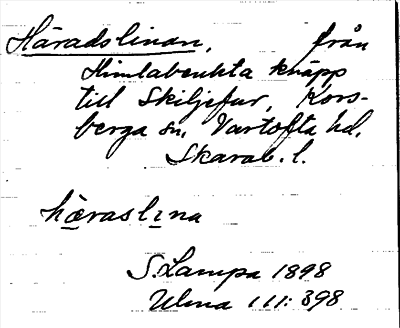 Häradslinan, från
Himlabeukta knäpp
till Skiljefur, Kors-
berga sn, Vartofta hd.
Skarab. l.
häraslina
S. Lampa 1898
Ulma 111: 398